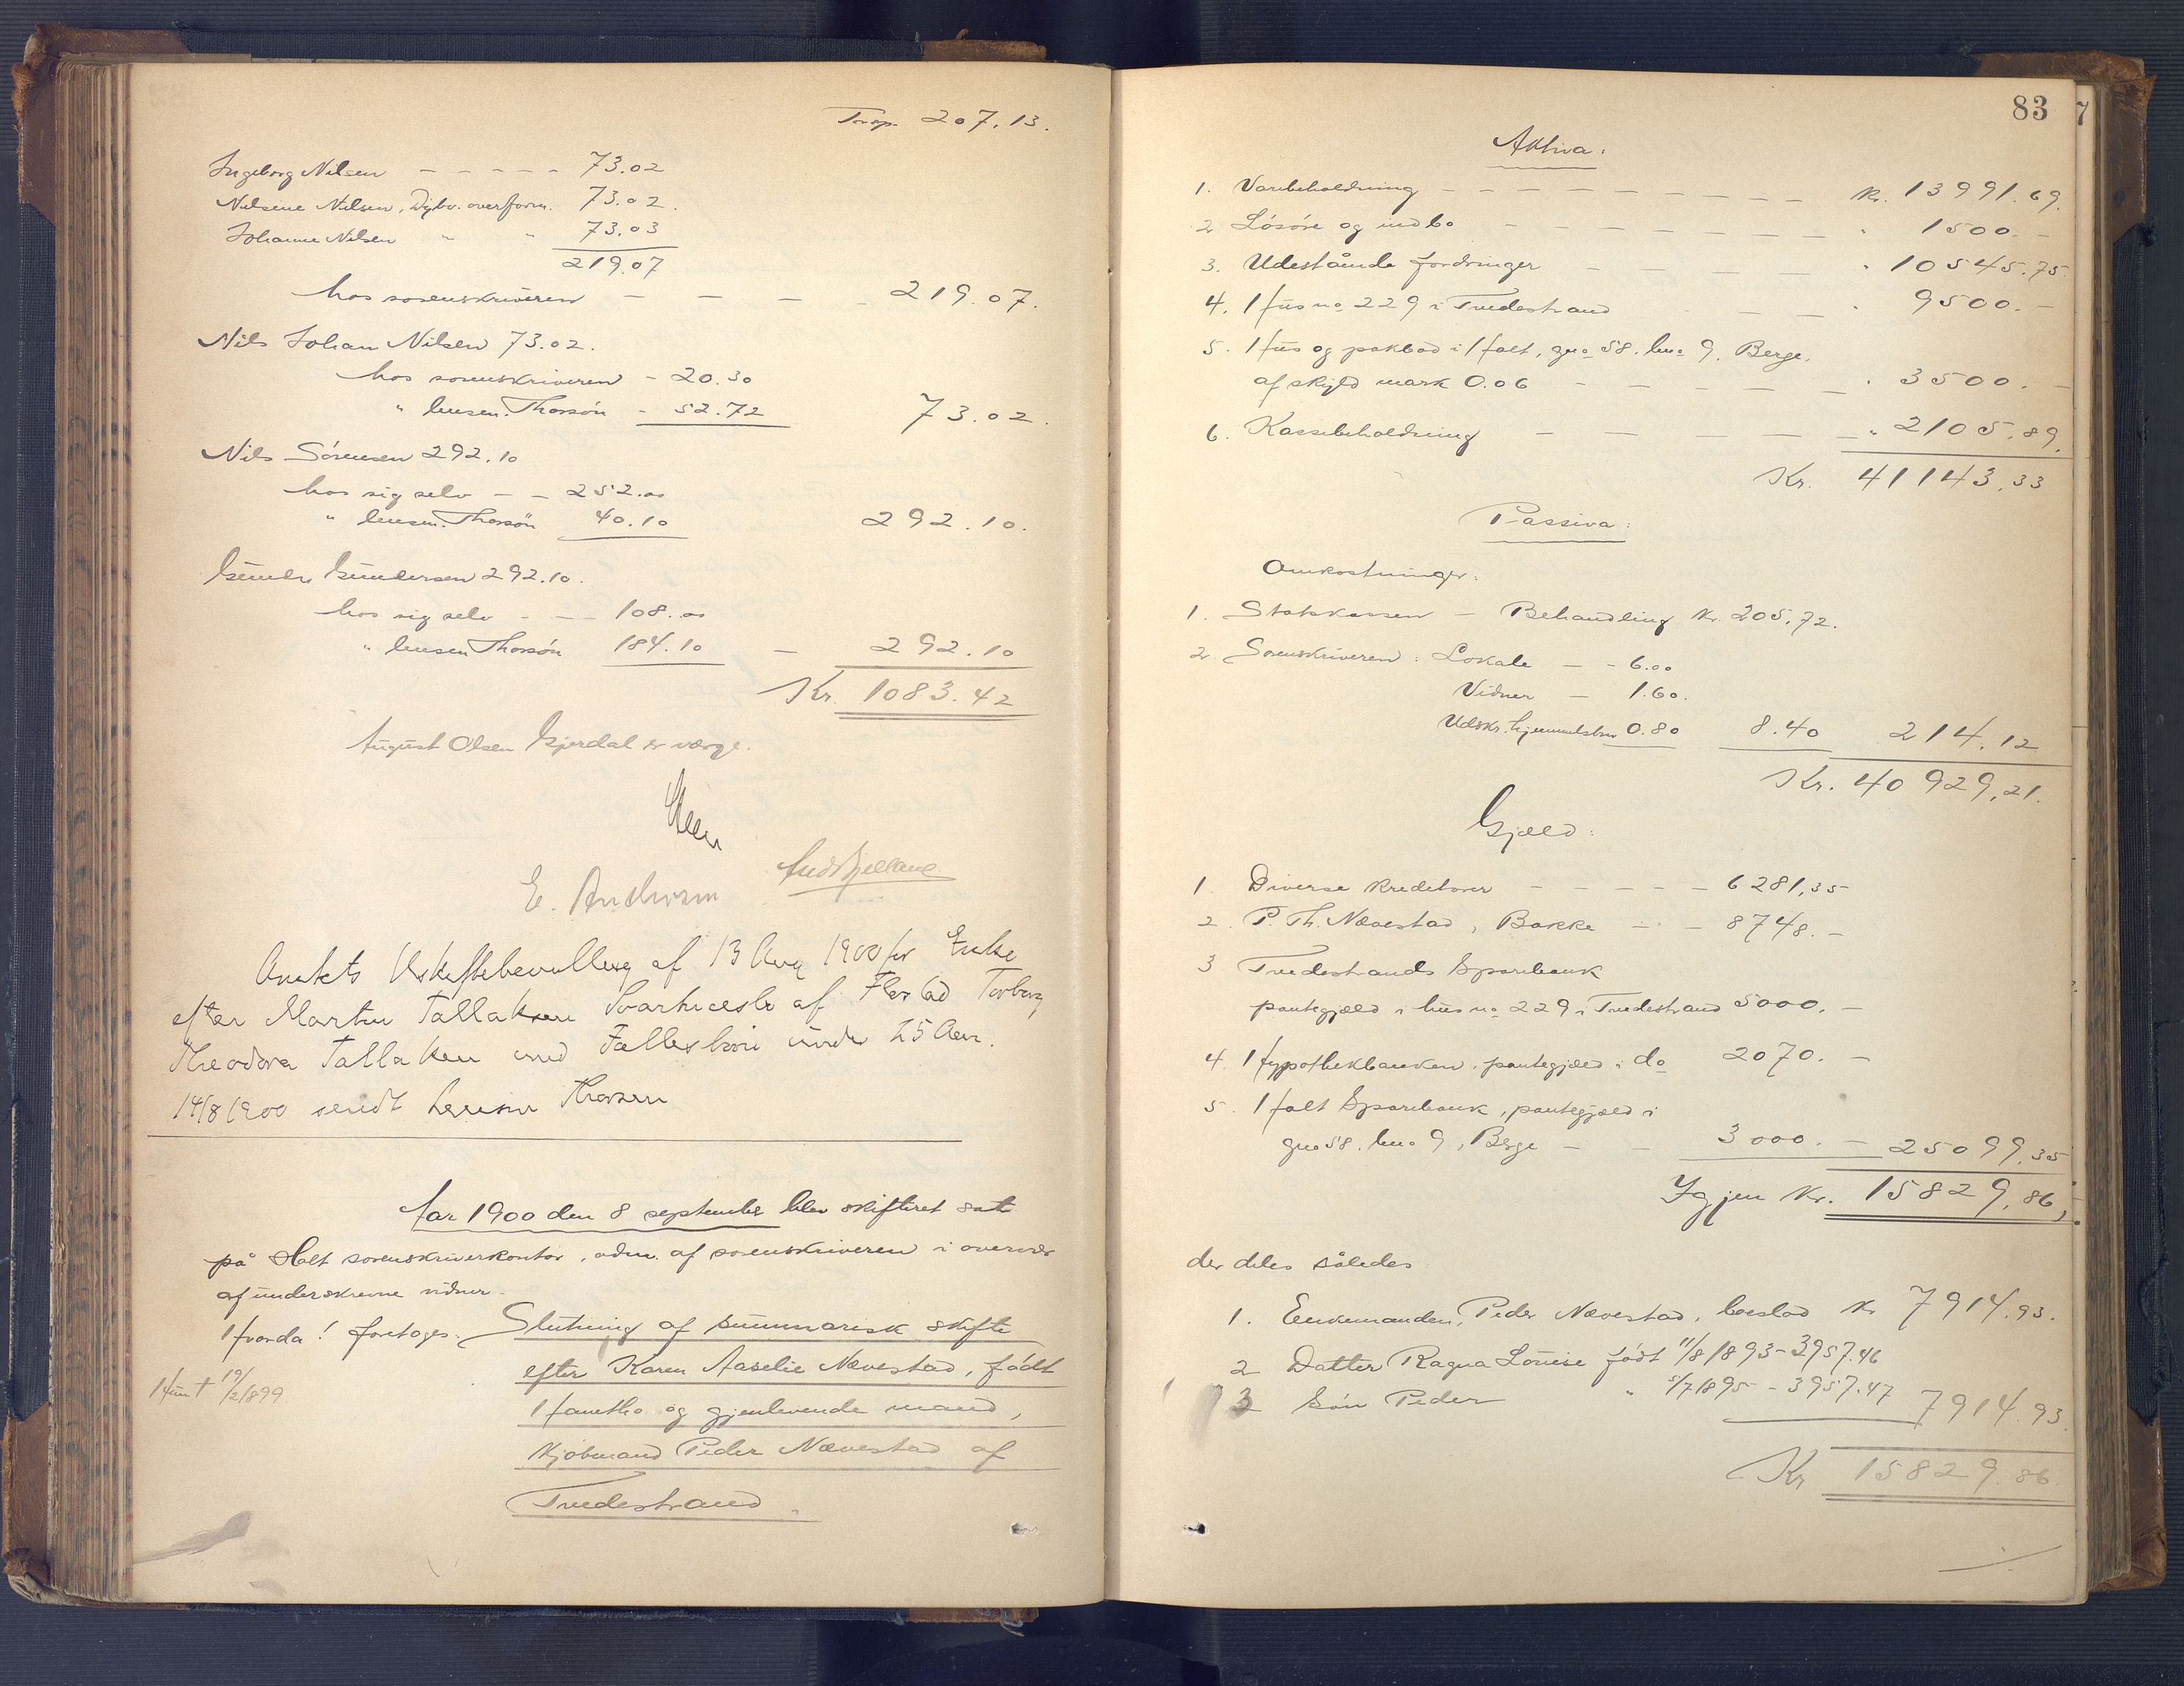 Trsp. 207.13.
Ingeborg Nilsen - - - - - 73.02
Nilsine Nilsen, Dybv. overform. 73.02.
Johanne Nilsen " " 73.03
219.07
hos sorenskriveren - - - - 219.07.
Nils Johan Nilsen 73.02.
hos sorenskriveren - 20.30
" lensm. Thorsön - 52.72 73.02.
Nils Sörensen 292.10
hos sig selv - - 252.00
" lensm. Thorsön 40.10 292.10.
Gunder Gundersen 292.10.
hos sig selv - - 108.00
" lensm Thorsön 184.10 - 292.10
Kr. 1083.42
August Olsen Gjerdal er værge.
E. Andersen
Amtets Uskiftebevilling af 13 Aug 1900 for Enke
efter Martin Tallaksen Svarthuesle af Flostad Torborg
Theodora Tallaksen med Fællesbarn under 25 Aar.
14/8 1900 sendt lensm Thorsen
Aar 1900 den 8 september blev skifteret sat
på Holt sorenskriverkontor, adm. af sorenskriveren i overvær
af underskrevne vidner.
Hvorda! foretoges: Slutning af summarisk skifte
efter Karen Aaselie Nævestad, født
Hun † 19/2 1899
Hanetho og gjenlevende mand,
kjøbmand Peder Nævestad af
Tvedestrand.
83
7
Aktiva:
1. Varebeholdning - - - - - - - Kr. 13991.69.
2 Lösöre og indbo - - - - - - - " 1500.-
3. Udestående fordringer - - - - - " 10545.75
4. Hus no 229 i Tvedestrand - - - " 9500.-
5. Hus og pakbod i Holt, gno 58. bno 9. Berge.
af skyld mark 0.06 - - - - - " 3500.-
6. Kassebeholdning - - - - - " 2105.89.
Kr. 41143.33
Passiva:
Omkostninger:
1. Statskassen - Behandling Kr. 205.72.
2. Sorenskriveren: Lokale - - 6.00
Vidner - 1.60.
Udskr. hjemmelsbrev 0.80 8.40 214.12
Kr. 40929,21.
Gjæld:
1. Diverse kreditorer - - - - - 6281,35
2. P. Th. Nævestad, Bakke - - - 8748.-
3 Tvedestrands Sparebank
pantegjæld i hus no 229 i Tvedestrand 5000.-
4. Hypothekbanken, pantegjæld i do 2070.-
5. Holt Sparebank, pantegjæld i
gno 58. bno 9, Berge - - 3000.- 25099,35
Igjen Kr. 15829,86,
der deles således
1. Enkemanden, Peder Nævestad, boeslod Kr 7914.93.
2 Datter Ragna Louise født 11/8 1893 - 3957.46
3 Sön Peder " 5/7 1895 - 3957.47 7914.93
Kr 15829.86